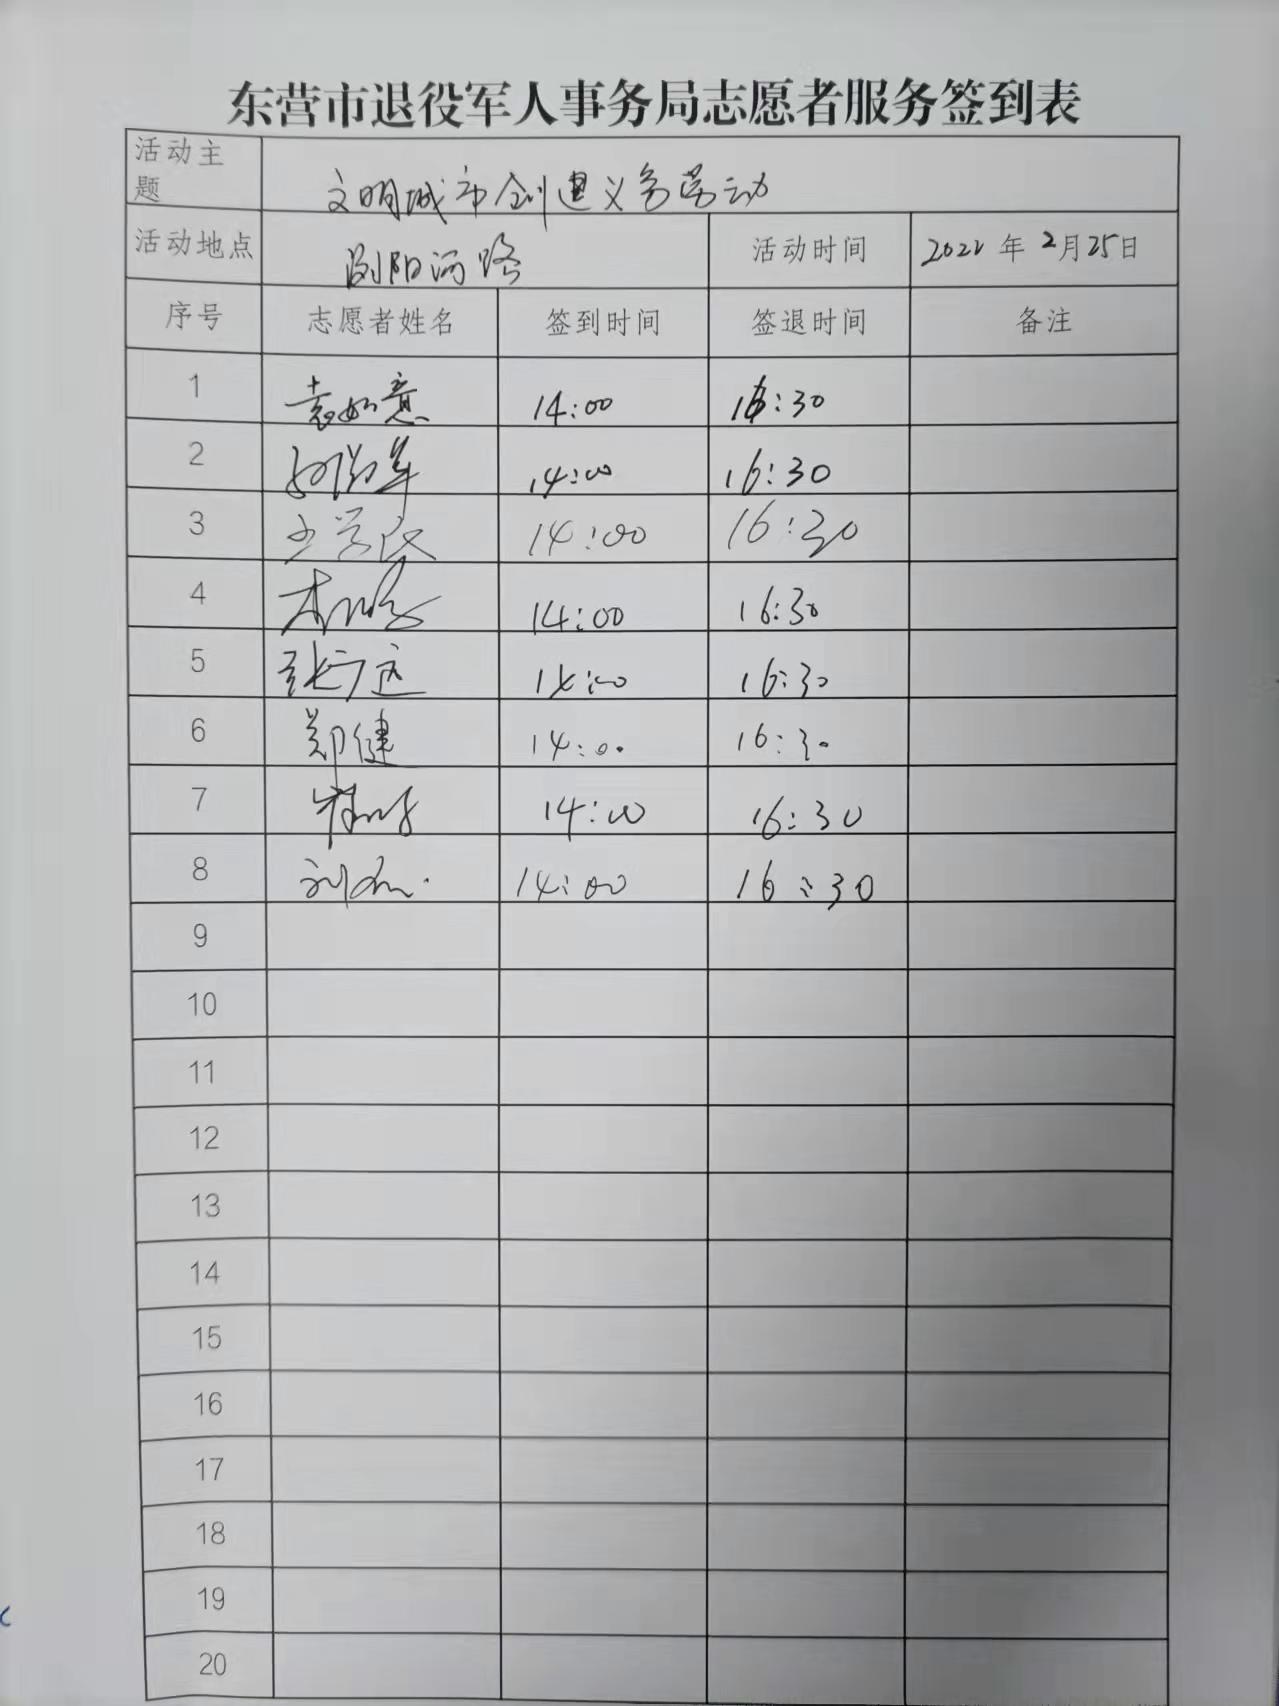 东营市退役军人事务局志愿者服务签到表
活动主题 文明城市创建义务劳动
活动地点 浏阳河路 活动时间 2022年2月25日
序号 志愿者姓名 签到时间 签退时间 备注
1 袁如意 14:00 16:30
2 14:00 16:30
3 王学政 14:00 16:30
4 14:00 16:30
5 张广远 14:00 16:30
6 郑健 14:00 16:30
7 14:00 16:30
8 14:00 16:30
9
10
11
12
13
14
15
16
17
18
19
20